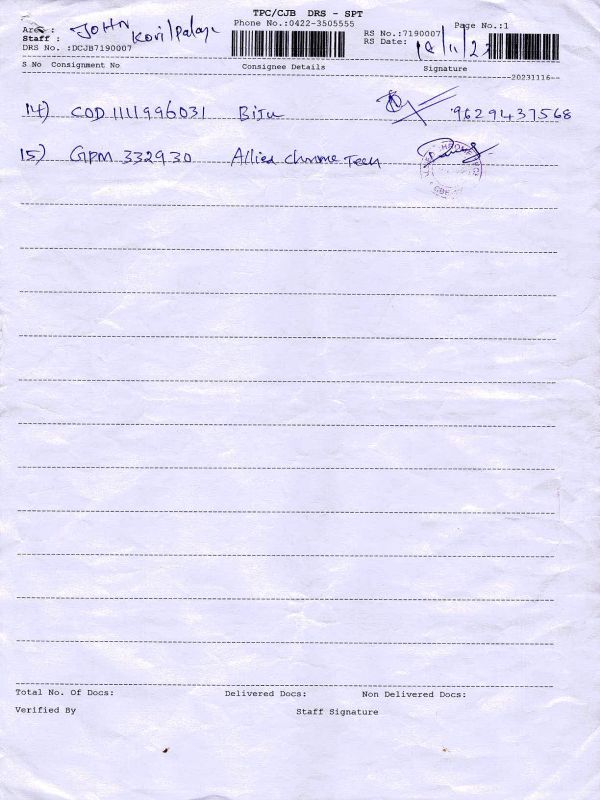 TPC/CJB DRS - SPT
Area : JOHN Kovilpalaya
Phone No.:0422-3505555
Page No.:1
Staff :
RS No.:7190007
DRS No. :DCJB7190007
RS Date: 18/11/23
S No Consignment No Consignee Details Signature
20231116
14) COD 1111996031 Biju 9629437568
15) GPM 332930 Allied chrome Tech
Total No. Of Docs: Delivered Docs: Non Delivered Docs:
Verified By Staff Signature